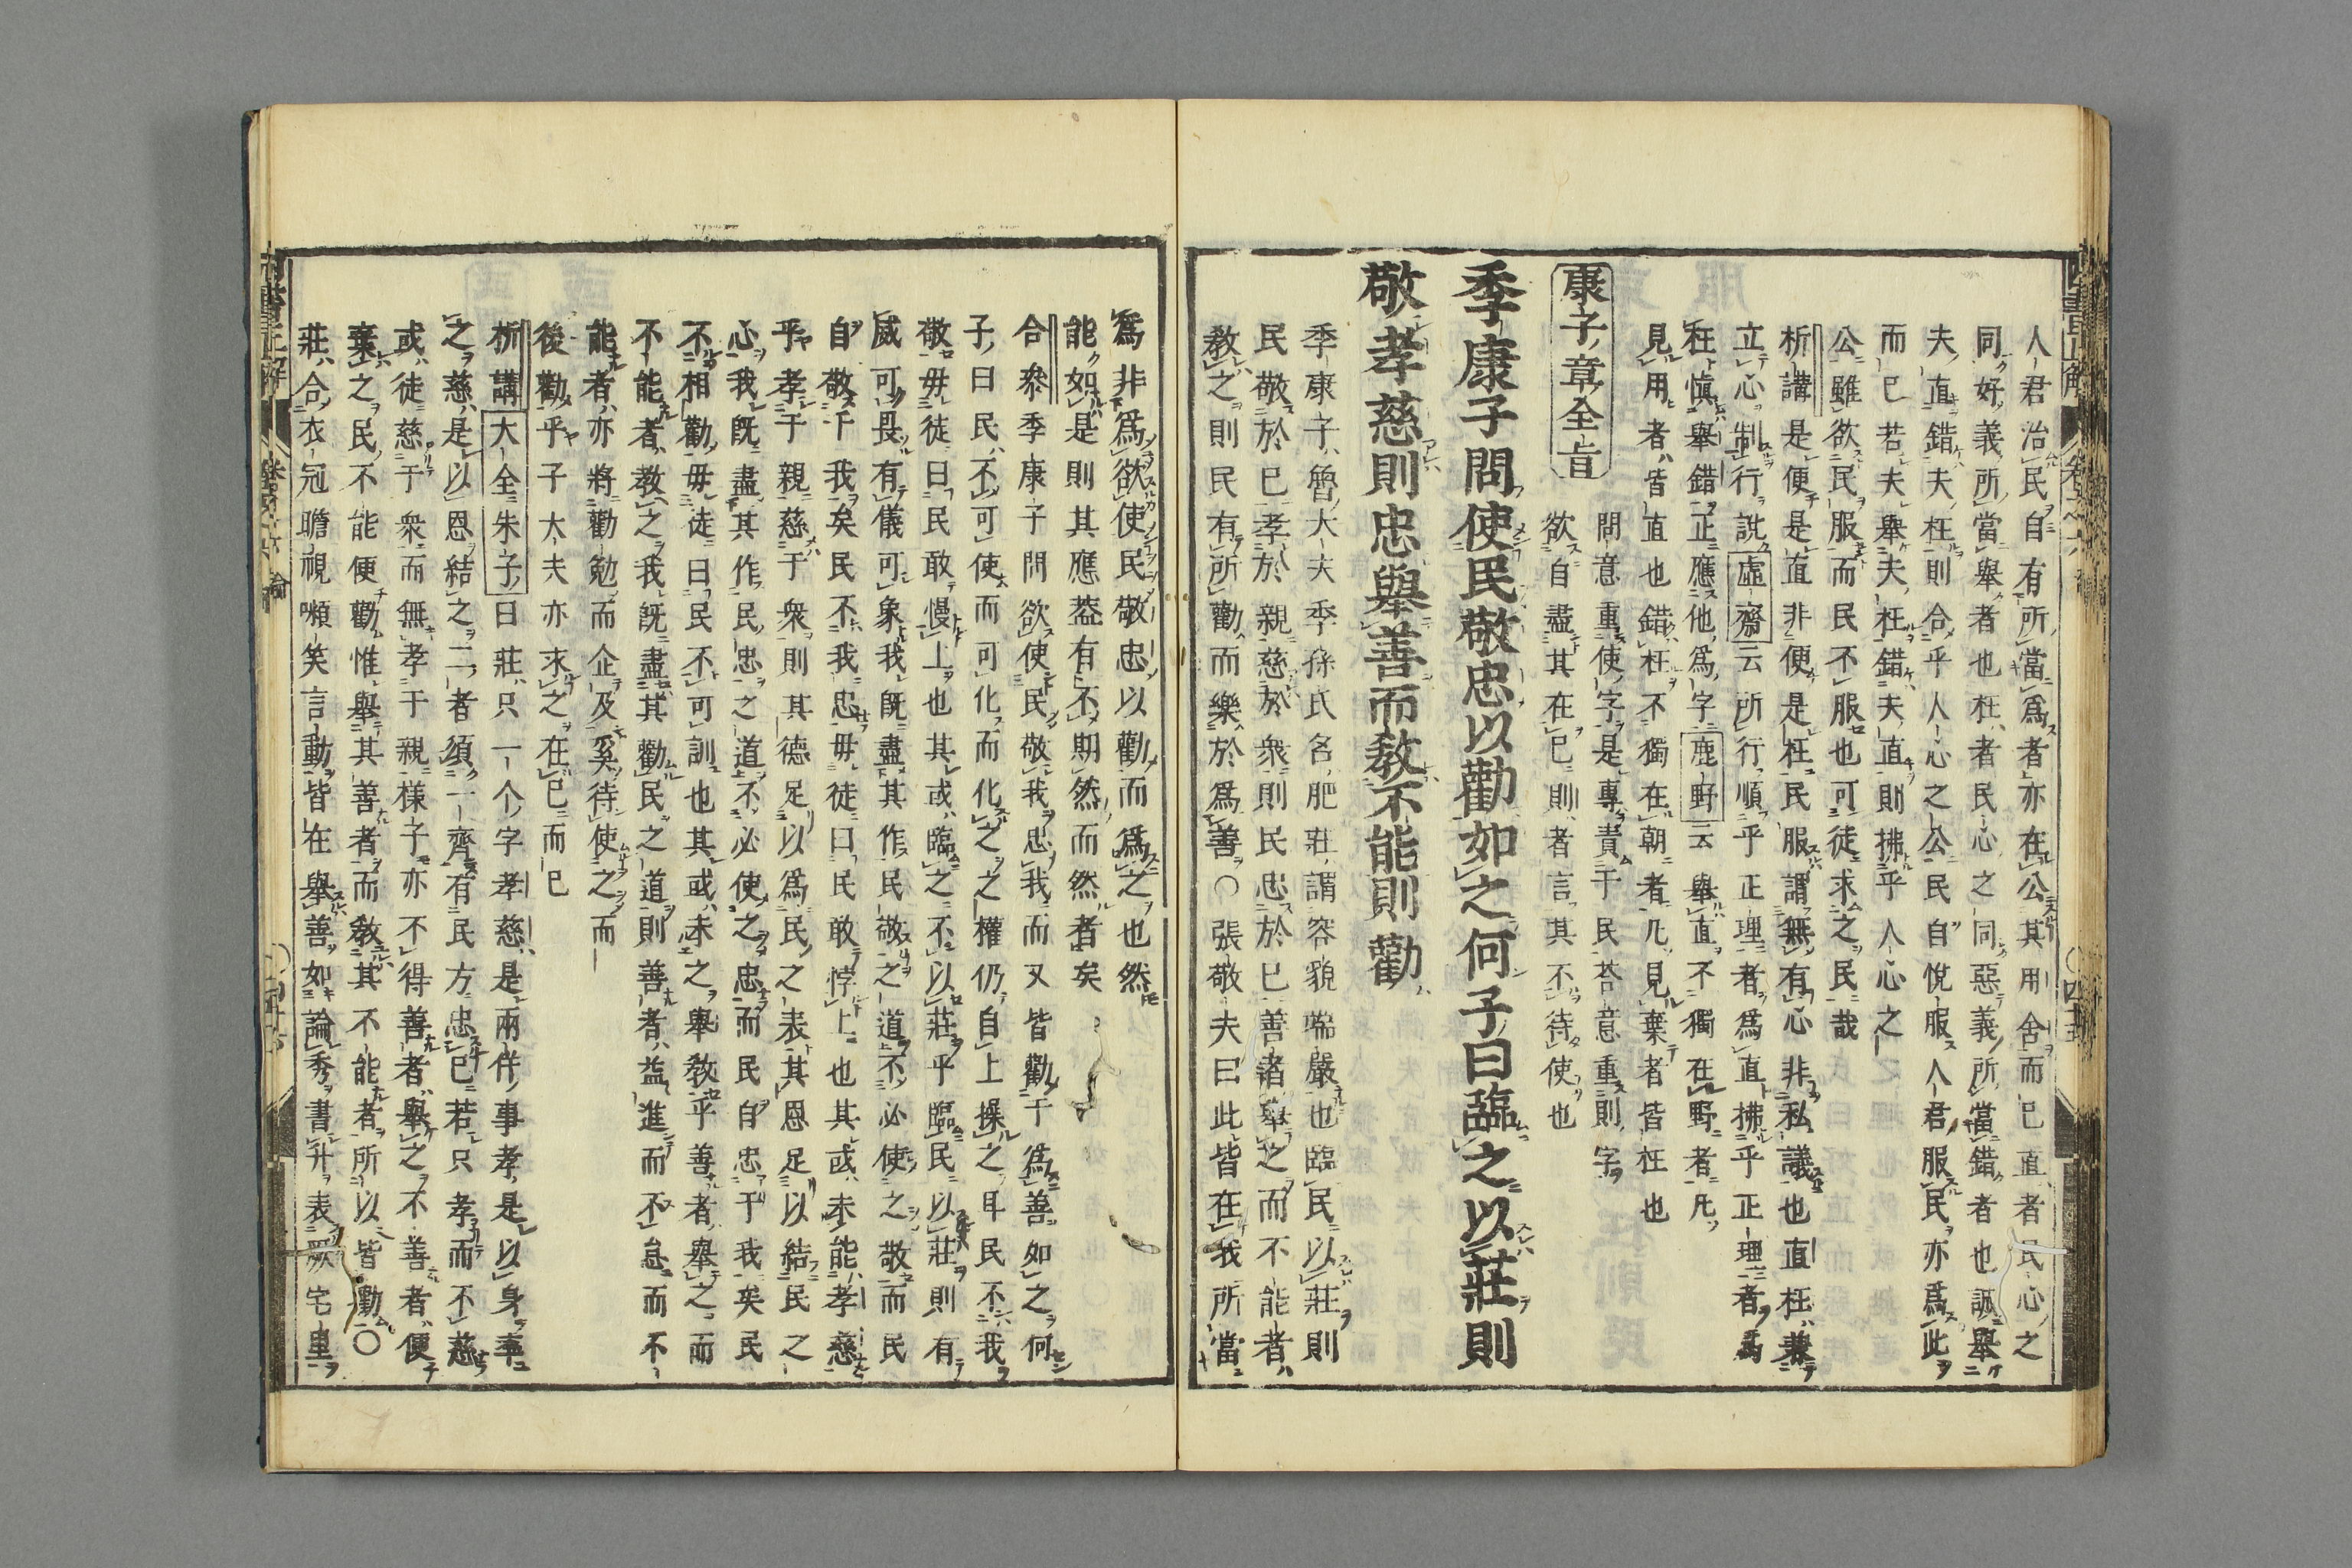 人君治民自有所當爲者亦在公其用舍而已直者民心之
同好義所當舉者也枉者民心之同惡義所當錯者也誠舉
夫直錯夫枉則合乎人心之公民自悅服人君服民亦爲此
而已若夫舉夫枉錯夫直則拂乎人心之
公雖欲民服而民不服也可徒求之民哉
析講是便是直非便是枉民服謂無有心非私議也直枉兼
立心制行說虛齋云所行順乎正理者爲直拂乎正理者爲
枉愼舉錯正應他爲字鹿野云舉直不獨在野者凡
見用者皆直也錯枉不獨在朝者凡見棄者皆枉也
康子章全旨
問意重使字是專責于民荅意重則字
欲自盡其在已則者言其不待使也
季康子問使民敬忠以勸如之何子曰臨之以莊則
敬孝慈則忠舉善而敎不能則勸
季康子魯大夫季孫氏名肥莊謂容貌端嚴也臨民以莊則
民敬於已孝於親慈於衆則民忠於已善者舉之而不能者
敎之則民有所勸而樂於爲善○張敬夫曰此皆在我所當
爲非爲欲使民敬忠以勸而爲之也然
能如是則其應葢有不期然而然者矣
合叅季康子問欲使民敬我忠我而又皆勸于爲善如之何
子曰民不可使而可化而化之之權仍自上操之耳民不我
敬毋徒曰民敢慢上也其或臨之不以莊乎臨民以莊則有
威可畏有儀可象我旣盡其作民敬之道不必使之敬而民
自敬于我矣民不我忠毋徒曰民敢悖上也其或未能孝慈
乎孝于親慈于衆則其德足以爲民之表其恩足以結民之
心我旣盡其作民忠之道不必使之忠而民自忠于我矣民
不相勸毋徒曰民不可訓也其或未之舉敎乎善者舉之而
不能者敎之我旣盡其勸民之道則善者益進而不怠而不
能者亦將勸勉而企及奚待使之而
後勸乎子大夫亦求之在已而已
析講大全朱子曰莊只一个字孝慈是兩件事孝是以身率
之慈是以恩結之二者須一齊有民方忠已若只孝而不慈
或徒慈于衆而無孝于親樣子亦不得善者舉之不善者便
棄之民不能便勸惟舉其善者而敎其不能者所以皆勸○
莊合衣冠瞻視嚬笑言動皆在舉善如論秀書升表厥宅里